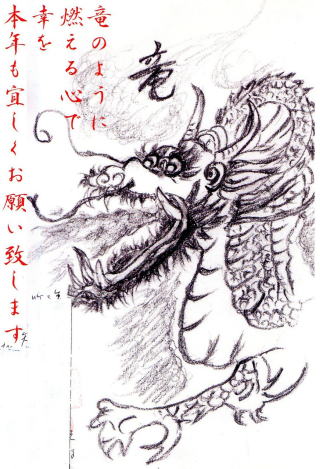 竜のように
燃える心で
幸を
本年も宜しくお願い致します
竜